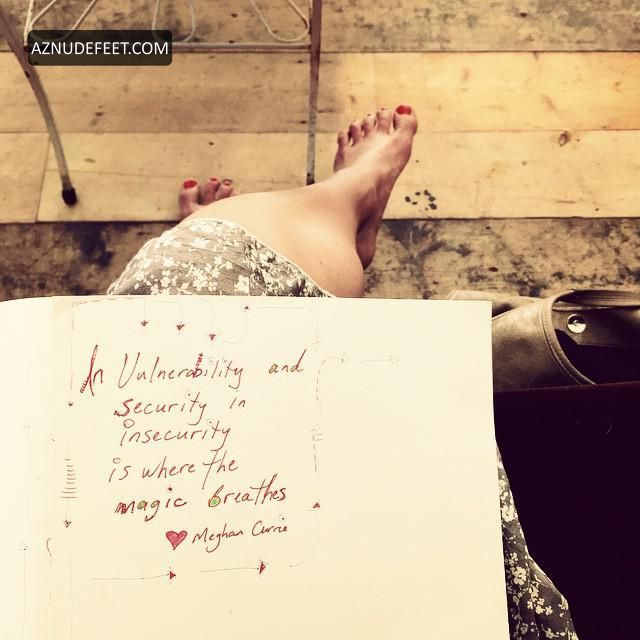 AZNUDEFEET.COM
In Vulnerability and
security in
insecurity
is where the
magic breathes
Meghan Currie